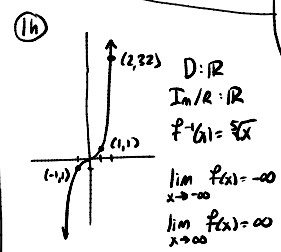 1h
(2,32)
(1,1)
(-1,1)
D: ℝ
Im/R: ℝ
f⁻¹(x) = ⁵√x
lim f(x) = -∞
x→-∞
lim f(x) = ∞
x→∞